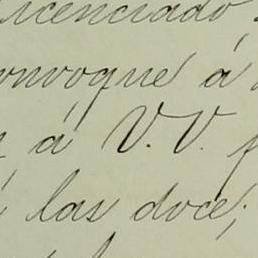 licenciado
onvoque á
á V. V.
las doce;